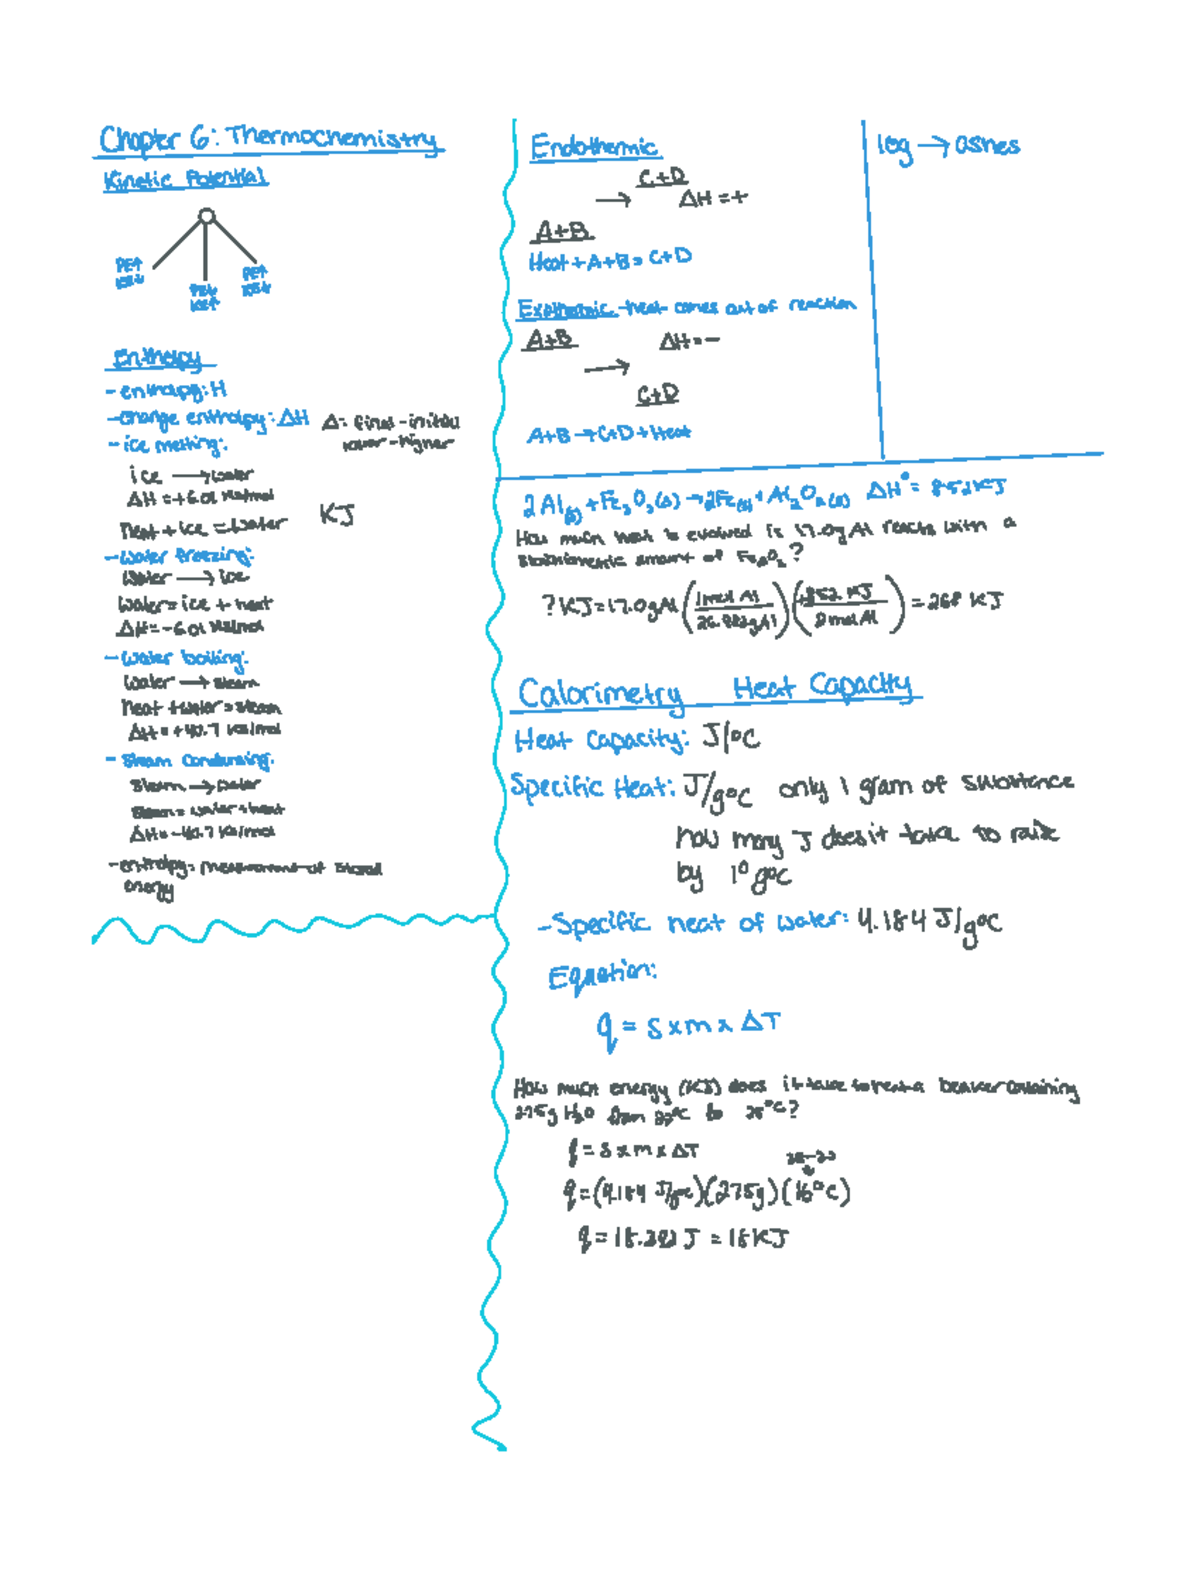 Chapter 6: Thermochemistry
Kinetic Potential
PE↑
KE↓
PE↓
KE↑
PE↑
KE↓
Enthalpy
- enthalpy: H
- change enthalpy: ΔH Δ: final - initial
lower - higher
- ice melting:
ice → water
ΔH = +6.01 KJ/mol
heat + ice = water KJ
- water freezing:
water → ice
water = ice + heat
ΔH = -6.01 KJ/mol
- water boiling:
water → steam
heat + water = steam
ΔH = +40.7 KJ/mol
- Steam Condensing:
Steam → water
Steam = water + heat
ΔH = -40.7 KJ/mol
- enthalpy: measurement of stored
energy
Endothermic
C+D
→ ΔH = +
A+B
Heat + A + B = C + D
Exothermic - heat comes out of reaction
A+B ΔH = -
→
C+D
A+B → C+D + Heat
log → ashes
2Al(s) + Fe2O3(s) → 2Fe(s) + Al2O3(s) ΔH° = 852 KJ
How much heat is evolved is 17.0g Al reacts with a
stoichiometric amount of Fe2O3?
? KJ = 17.0g Al (1 mol Al / 26.982g Al) (852 KJ / 2 mol Al) = 268 KJ
Calorimetry Heat Capacity
Heat Capacity: J/°C
Specific Heat: J/g°C only 1 gram of substance
how many J does it take to raise
by 1° g°C
- Specific heat of water: 4.184 J/g°C
Equation:
q = s x m x ΔT
How much energy (KJ) does it take to heat a beaker containing
275g H2O from °C to °C?
q = s x m x ΔT
q = (4.184 J/g°C)(275g)(16°C)
q = J = 18 KJ